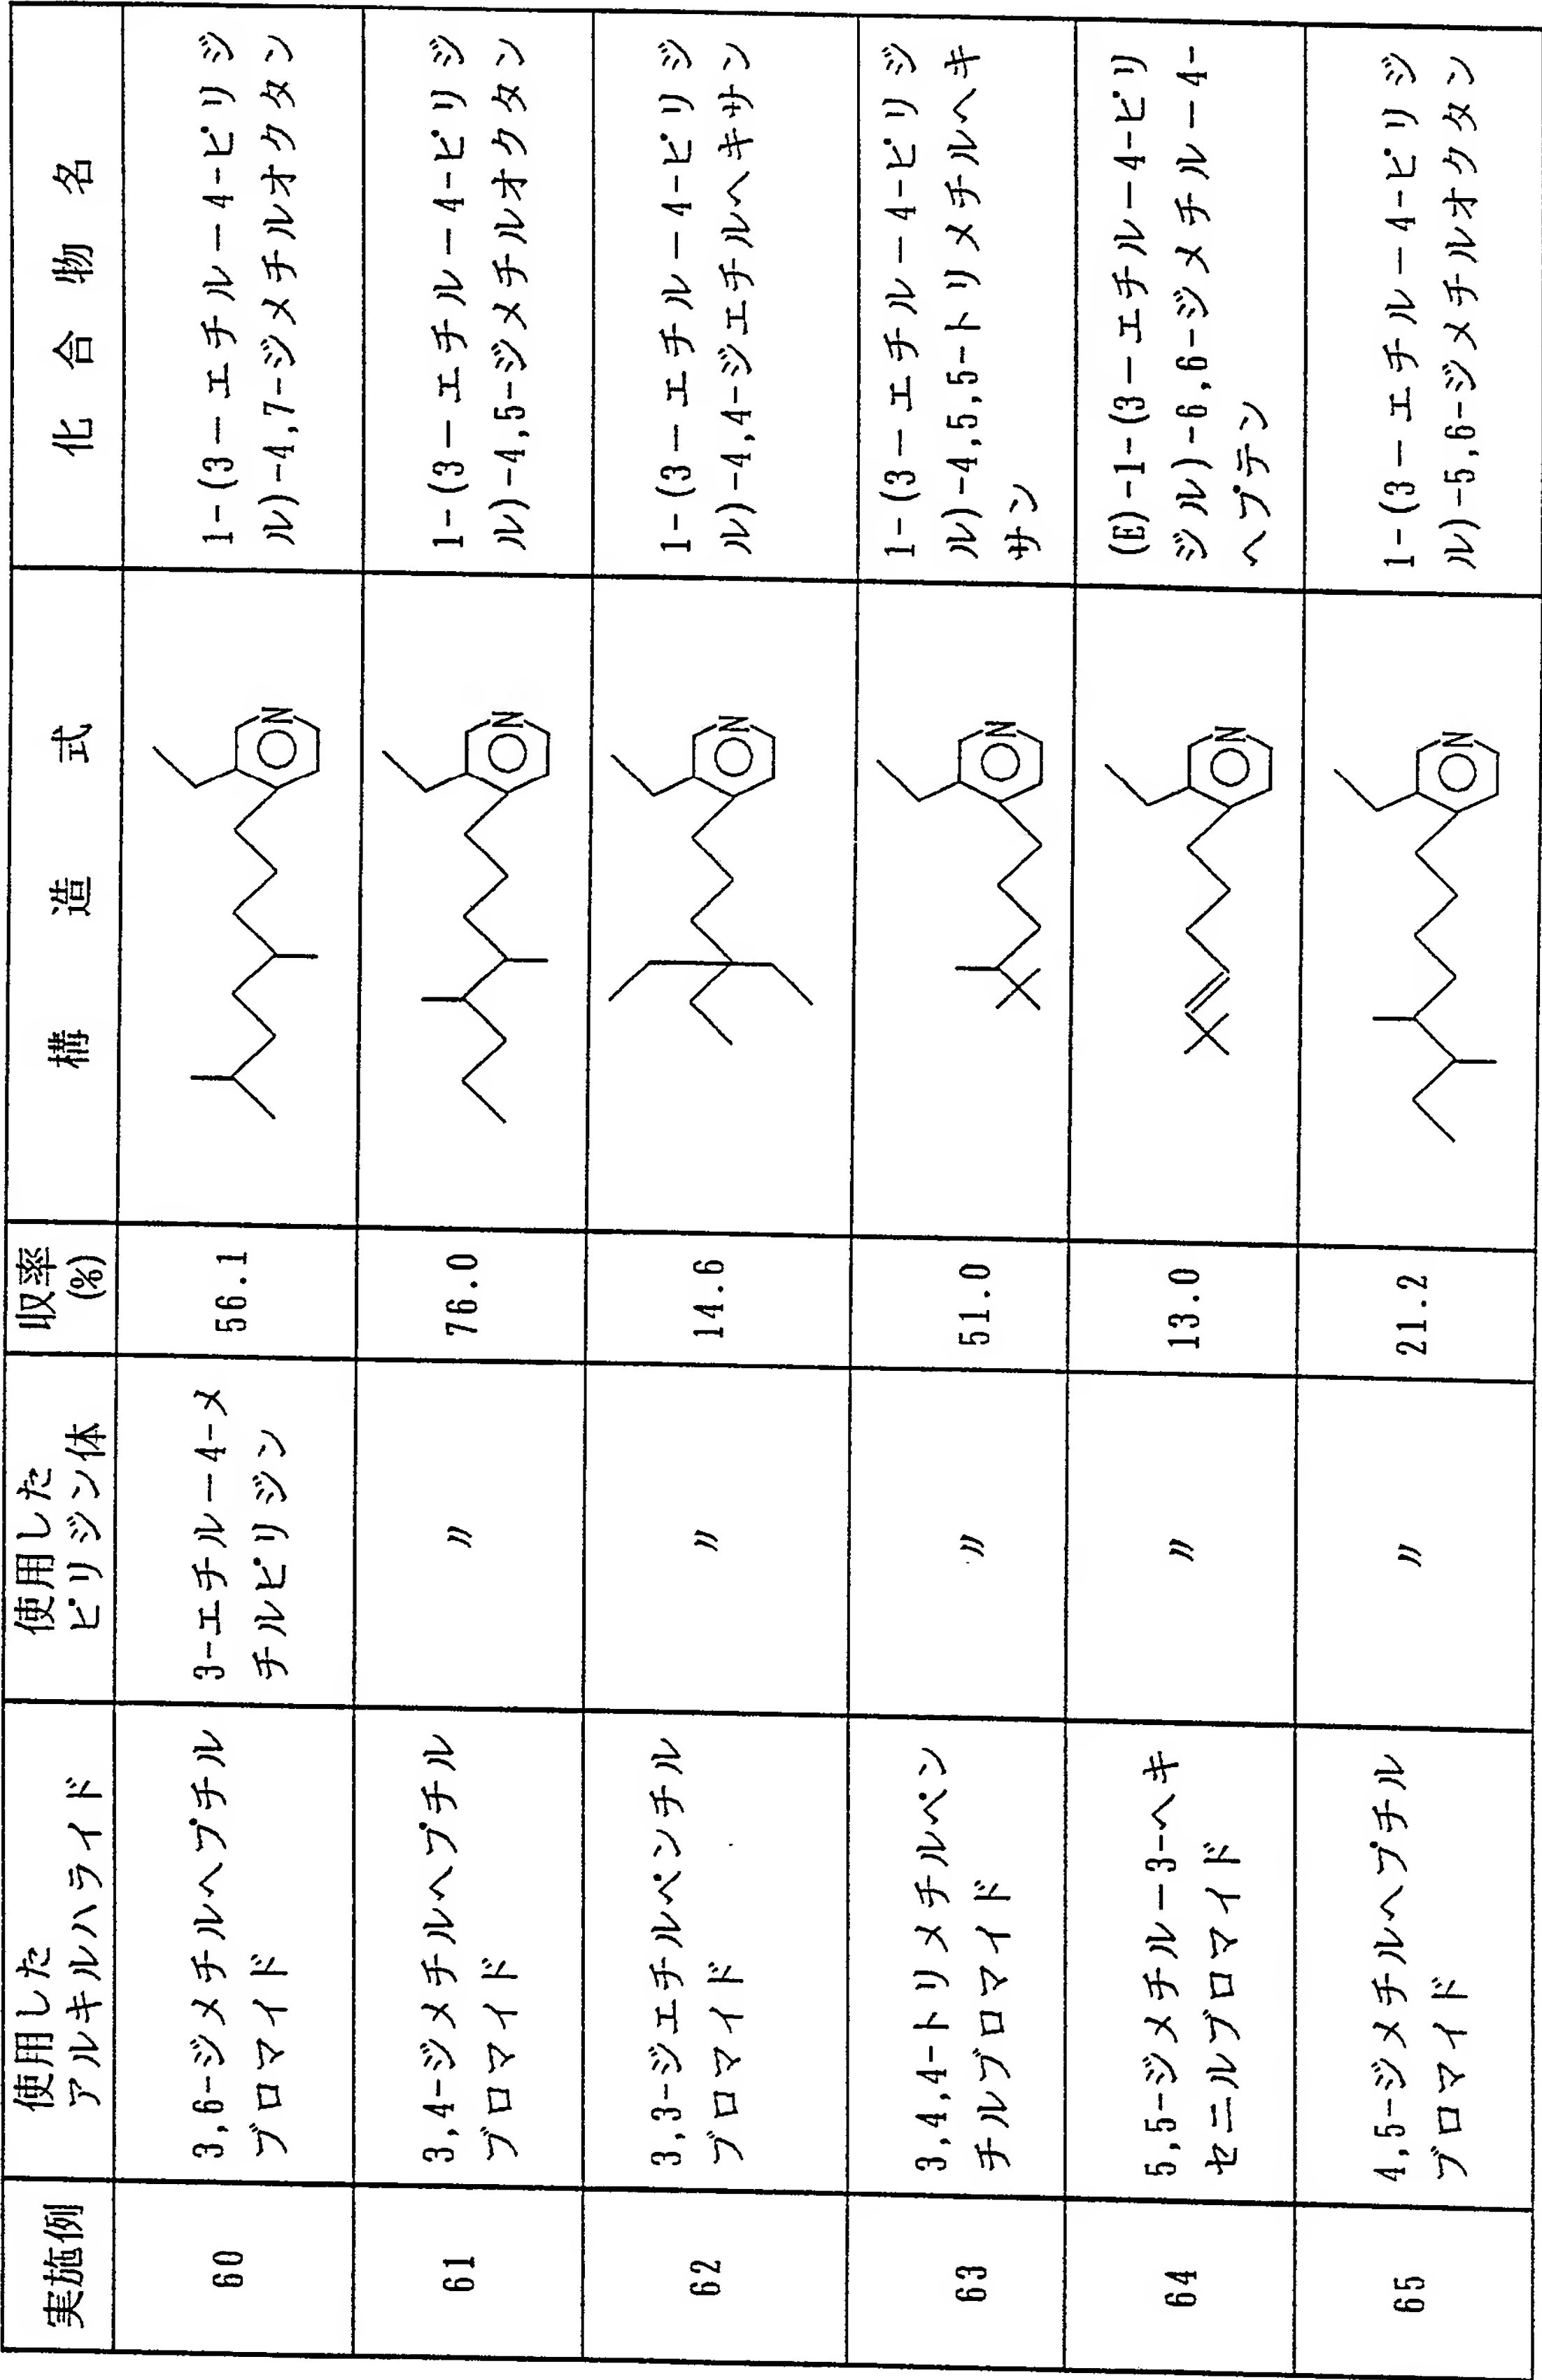 実施例
使用した
アルキルハライド
使用した
ピリジン体
収率
(%)
構造式
化合物名
60
3,6-ジメチルヘプチル
ブロマイド
3-エチル-4-メ
チルピリジン
56.1
N
1-(3-エチル-4-ピリジ
ル)-4,7-ジメチルオクタン
61
3,4-ジメチルヘプチル
ブロマイド
〃
76.0
N
1-(3-エチル-4-ピリジ
ル)-4,5-ジメチルオクタン
62
3,3-ジエチルペンチル
ブロマイド
〃
14.6
N
1-(3-エチル-4-ピリジ
ル)-4,4-ジエチルヘキサン
63
3,4,4-トリメチルペン
チルブロマイド
〃
51.0
N
1-(3-エチル-4-ピリジ
ル)-4,5,5-トリメチルヘキ
サン
64
5,5-ジメチル-3-ヘキ
セニルブロマイド
〃
13.0
N
(E)-1-(3-エチル-4-ピリ
ジル)-6,6-ジメチル-4-
ヘプテン
65
4,5-ジメチルヘプチル
ブロマイド
〃
21.2
N
1-(3-エチル-4-ピリジ
ル)-5,6-ジメチルオクタン